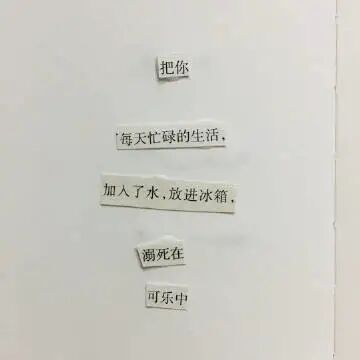 把你
每天忙碌的生活，
加入了水，放进冰箱，
溺死在
可乐中